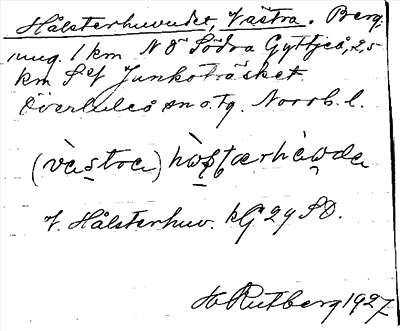 Hålsterhuvudet, Västra. Berg,
ung. 1 km NÖ Södra Gyttjeå, 2,5
km S ef Junkoträsket
Överluleå sn o. tg. Norrb. l.
(vàstra)
V. Hålsterhuv. kG 29 SO.
H Rutberg 1927